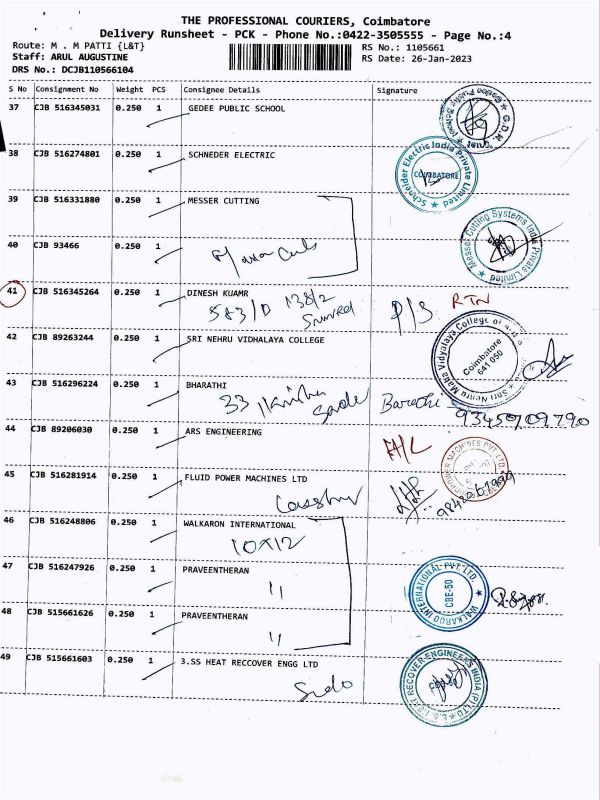 THE PROFESSIONAL COURIERS, Coimbatore
Delivery Runsheet - PCK - Phone No.:0422-3505555 - Page No.:4
Route: M . M PATTI {L&T}
RS No.: 1105661
Staff: ARUL AUGUSTINE
RS Date: 26-Jan-2023
DRS No.: DCJB110566104
S No Consignment No Weight PCS Consignee Details Signature
37 CJB 516345031 0.250 1 GEDEE PUBLIC SCHOOL
38 CJB 516274801 0.250 1 SCHNEDER ELECTRIC
Schneider Electric India Private Limited
COIMBATORE
39 CJB 516331880 0.250 1 MESSER CUTTING
Messer Cutting Systems India Private Limited
40 CJB 93466 0.250 1
41 CJB 516345264 0.250 1 DINESH KUAMR
583/D 138/2
P/S RTN
42 CJB 89263244 0.250 1 SRI NEHRU VIDHALAYA COLLEGE
Coimbatore
641 050
43 CJB 516296224 0.250 1 BHARATHI
33
Barathi
44 CJB 89206030 0.250 1 ARS ENGINEERING
45 CJB 516281914 0.250 1 FLUID POWER MACHINES LTD
46 CJB 516248806 0.250 1 WALKARON INTERNATIONAL
10x12
47 CJB 516247926 0.250 1 PRAVEENTHERAN
"
WALKAROO INTERNATIONAL PVT LTD.
CBE-50
48 CJB 515661626 0.250 1 PRAVEENTHERAN
"
49 CJB 515661603 0.250 1 3.SS HEAT RECCOVER ENGG LTD
Sido